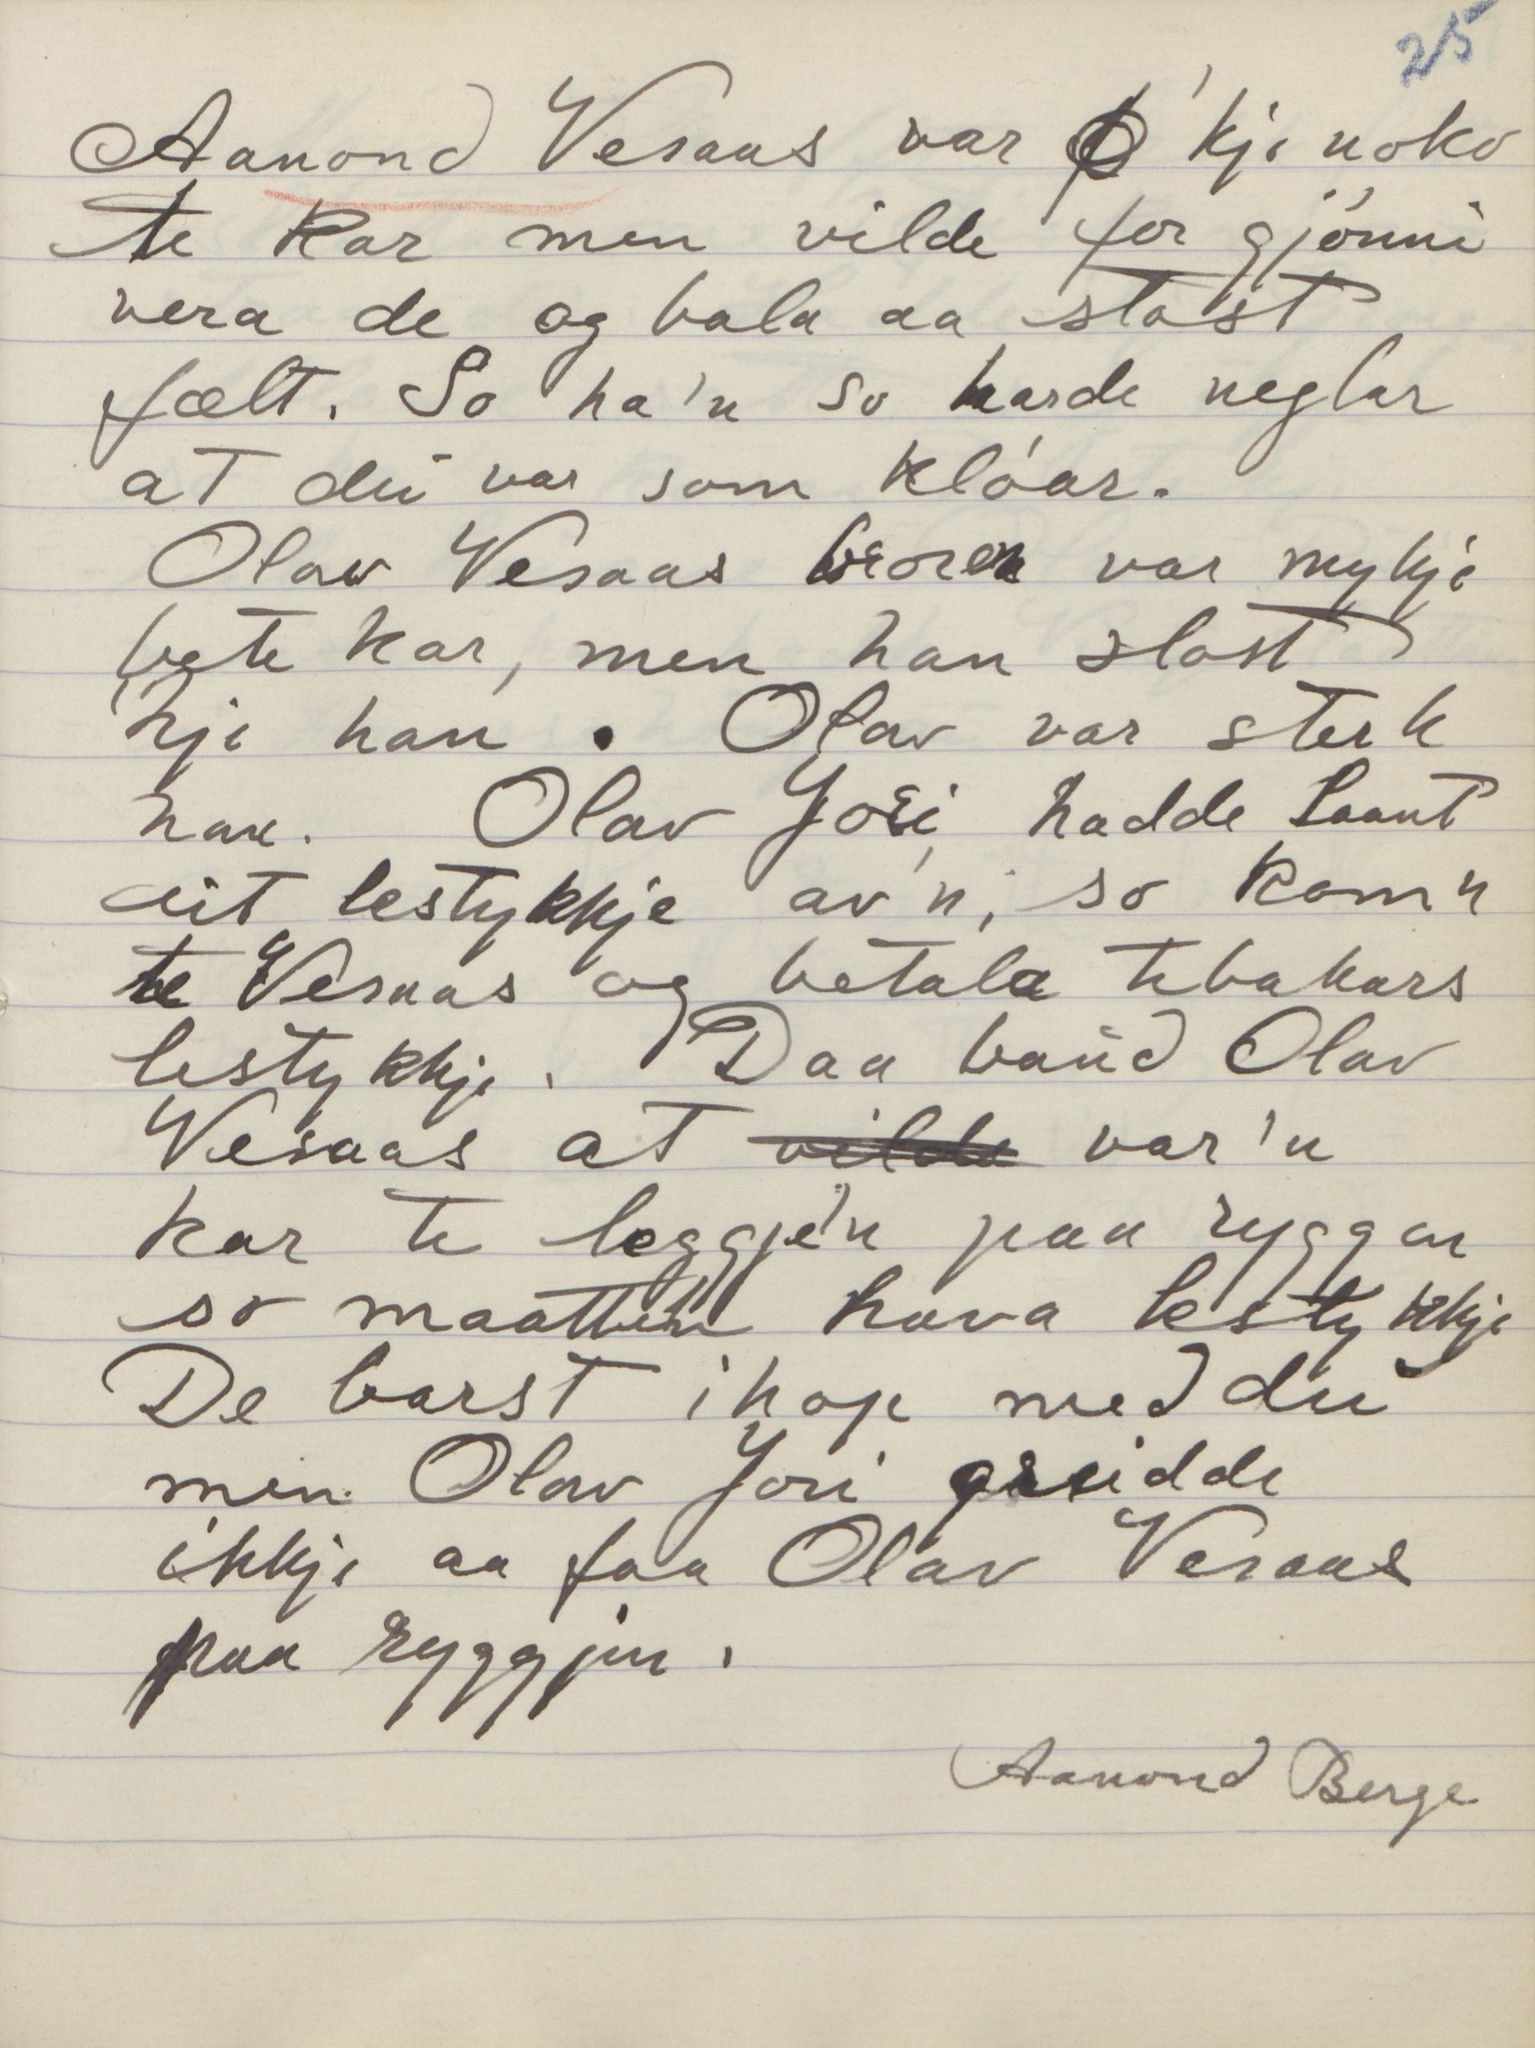 25
Aamond Vesaas var 'kje noko
te kar men vilde for gjönni
vera de og bala aa slost
fælt. So ha'n so harde neglar
at dei var som klóar.
Olav Vesaas broren var mykje
bete kar, men han slost
kje han. Olav var sterk
han. Olav Jori hadde laant
eit lestykkje av'n, so kom'n
te Vesaas og betala tebakars
lestykkje. Daa baud Olav
Vesaas at vilde var'n
kar te leggje'n paa ryggen
so maatten hava lestykkje
De barst ihop med dei
men Olav Jori greidde
ikkje aa faa Olav Vesaas
paa ryggjen.
Aamond Berge